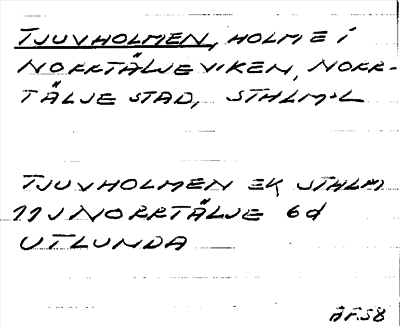 TJUVHOLMEN, HOLME I
NORRTÄLJEVIKEN, NORR-
TÄLJE STAD, STHLM:L
TJUVHOLMEN EK STHLM
11J NORRTÄLJE 6d
UTLUNDA
ÄF.58